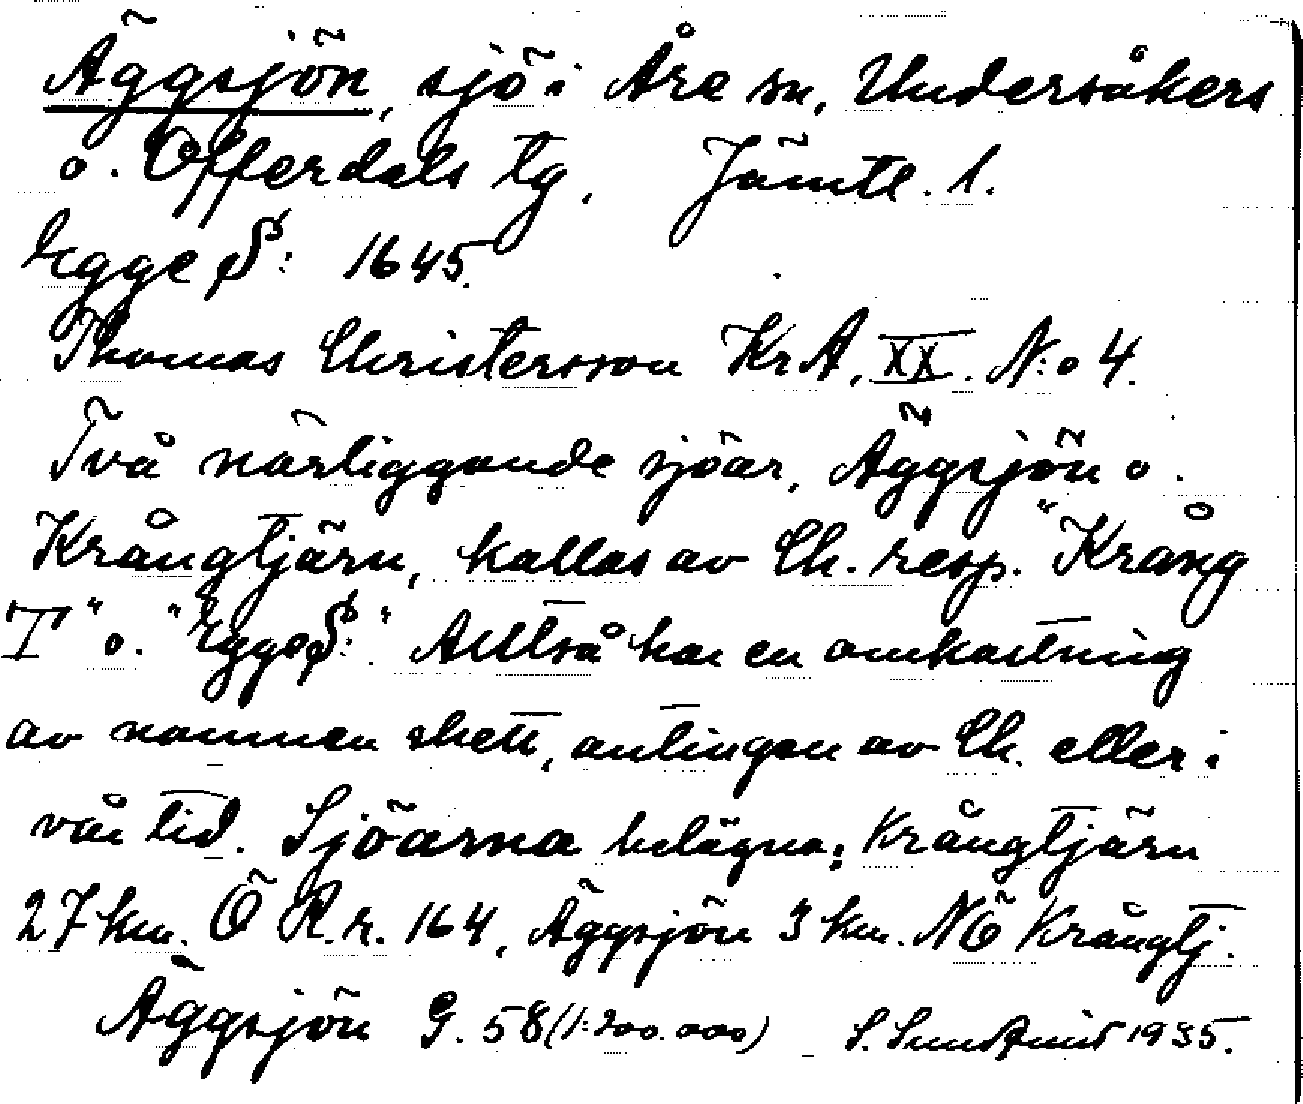 Äggsjön, sjö i Åre sn, Undersåkers
o. Offerdals tg, Jämtl. l.
Egge S: 1645.
Thomas Christersson KrA, XX. N:o 4.
Två närliggande sjöar, Äggsjön o.
Krångtjärn, kallas av Ch. resp. "Krång
T" o. "Egge S:". Alltså har en omkastning
av namnen skett, antingen av Ch. eller i
vår tid. Sjöarna belägna: Krångtjärn
27 km. Ö R.r. 164, Äggsjön 3 km. NÖ Krångtj.
Äggsjön G. 58 (1:200.000) S. Sundqvist 1935.